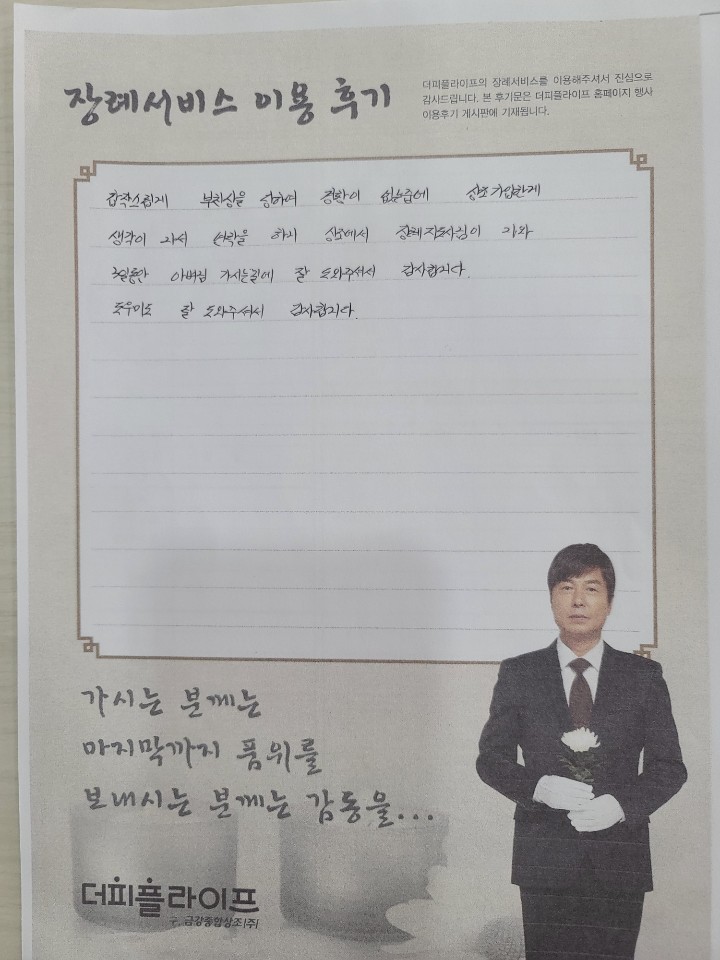 장례서비스 이용 후기
더피플라이프의 장례서비스를 이용해주셔서 진심으로
감사드립니다. 본 후기문은 더피플라이프 홈페이지 행사
이용후기 게시판에 기재됩니다.
갑작스럽게 부친상을 당하여 경황이 없는중에 상조가입한게
생각이 나서 연락을 하니 상조에서 장례지도사님이 나와
3일동안 아버님 가시는길에 잘 도와주셔서 감사합니다.
도우미도 잘 도와주셔서 감사합니다.
가시는 분께는
마지막까지 품위를
보내시는 분께는 감동을...
더피플라이프
구. 금강종합상조(주)